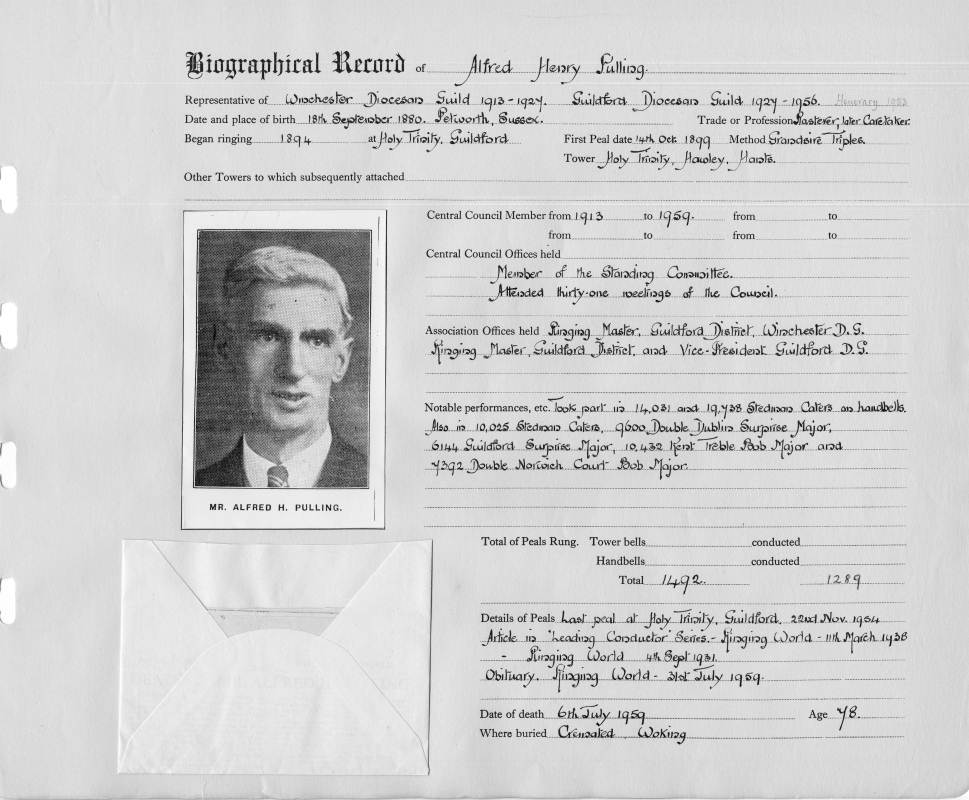 Biographical Record of Alfred Henry Pulling.
Representative of Winchester Diocesan Guild 1913-1927. Guildford Diocesan Guild 1927-1956. Honorary 1953
Date and place of birth 18th September 1880. Petworth, Sussex. Trade or Profession Plasterer, later Caretaker.
Began ringing 1894 at Holy Trinity, Guildford First Peal date 14th Oct. 1899 Method Grandsire Triples.
Tower Holy Trinity, Hawley, Hants.
Other Towers to which subsequently attached
Central Council Member from 1913 to 1959. from to
from to from to
Central Council Offices held
Member of the Standing Committee.
Attended thirty-one meetings of the Council.
Association Offices held Ringing Master, Guildford District, Winchester D.G.
Ringing Master, Guildford District, and Vice-President Guildford D.G.
Notable performances, etc. Took part in 14,031 and 19,738 Stedman Caters on handbells.
Also in 10,025 Stedman Caters, 9600 Double Dublin Surprise Major,
6144 Guildford Surprise Major, 10,432 Kent Treble Bob Major and
7392 Double Norwich Court Bob Major.
MR. ALFRED H. PULLING.
Total of Peals Rung. Tower bells conducted
Handbells conducted
Total 1492. 1289
Details of Peals Last peal at Holy Trinity, Guildford, 22nd Nov. 1954
Article in 'Leading Conductor' Series. - Ringing World - 11th March 1938
- Ringing World 4th Sept 1931.
Obituary. Ringing World - 31st July 1959.
Date of death 6th July 1959 Age 78.
Where buried Cremated Woking